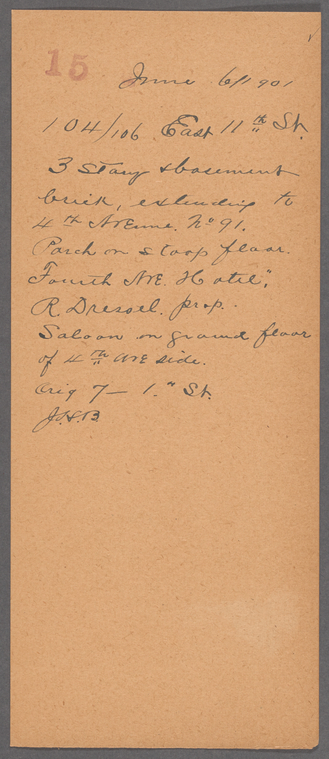 15
June 6/1901
104/106 East 11th St.
3 Story & basement
brick, extending to
4th Avenue. No 91.
Porch on stoop floor.
Fourth Ave. Hotel",
R. Dressel. prop.
Saloon on ground floor
of 4th Ave side.
Orig 7— 1." St.
J.S.B